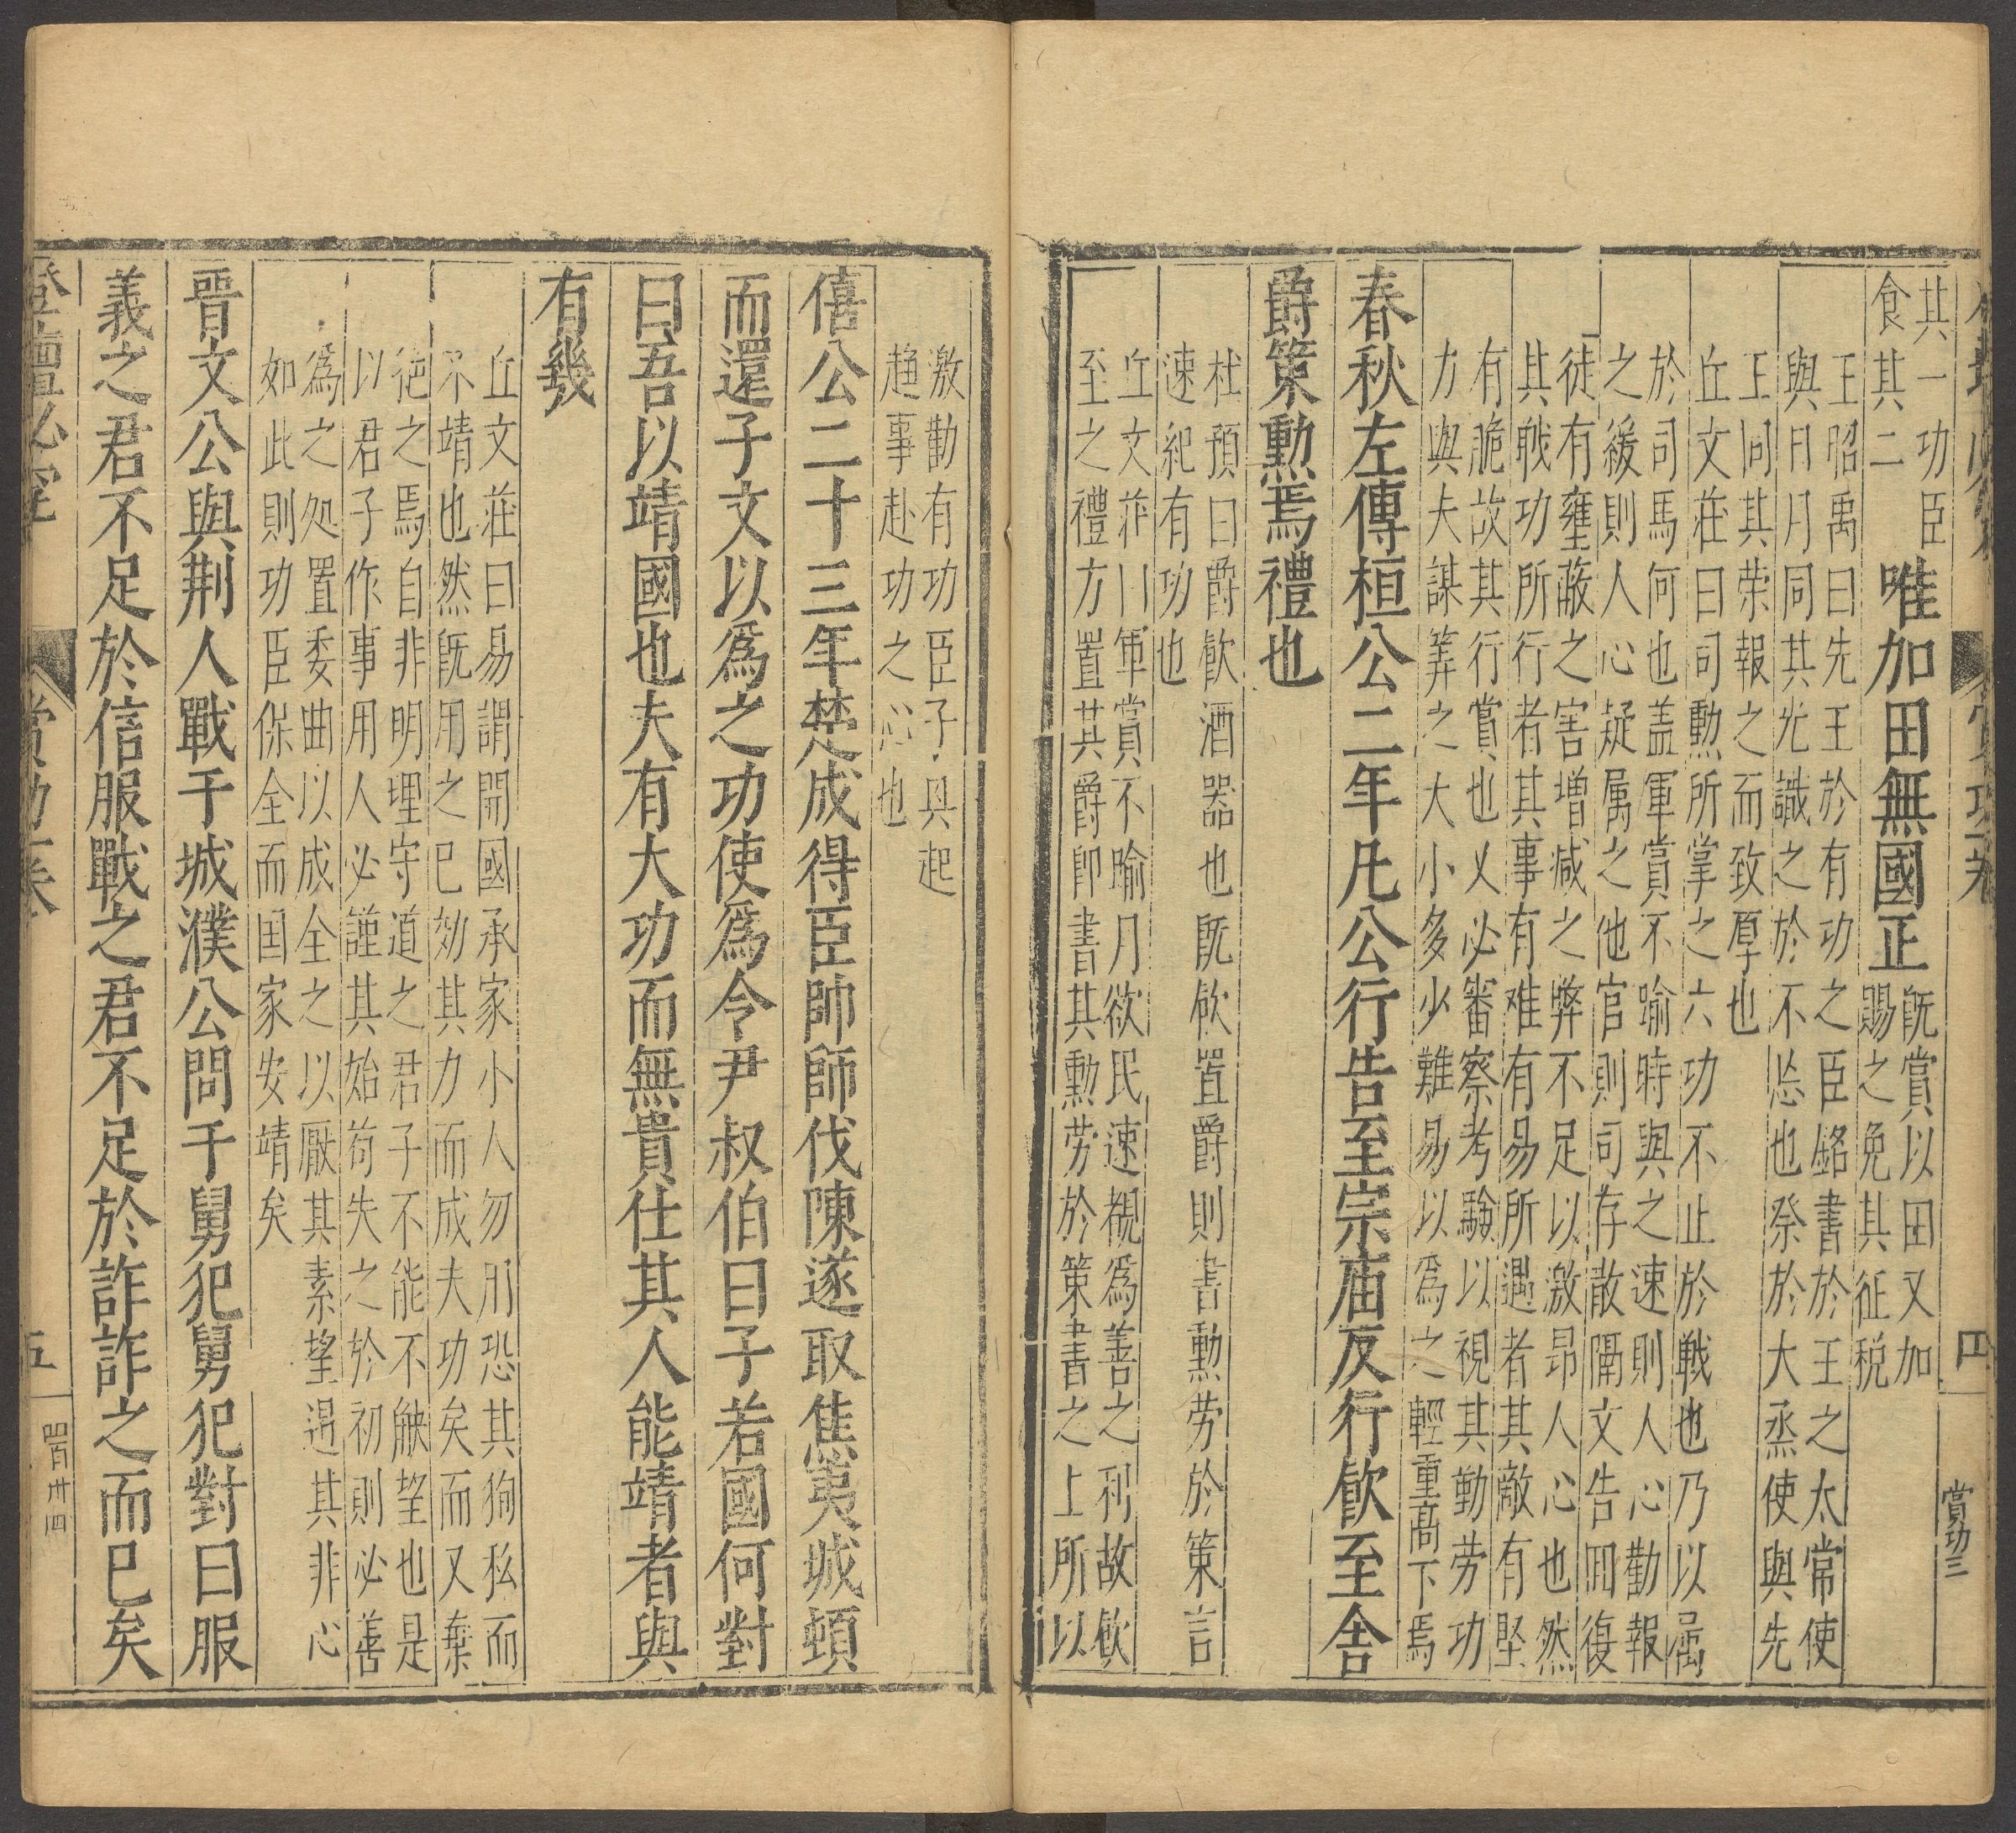 賞功一卷
四
賞功三
其一功臣
食其二
唯加田無國正
既賞以田又加
賜之免其征税
王昭禹曰先王於有功之臣銘書於王之太常使
與日月同其光識之於不忘也祭於大烝使與先
王同其荣報之而致厚也
丘文莊曰司勲所掌之六功不止於戰也乃以属
於司馬何也盖軍賞不踰時與之速則人心勸報
之緩則人心疑属之他官則司存散隔文告囬復
徒有壅蔽之害增减之弊不足以激昂人心也然
其戰功所行者其事有难有易所遇者其敵有堅
有脆故其行賞也又必審察考驗以視其勤劳功
力與夫謀筭之大小多少難易以爲之輕重高下焉
春秋左傳桓公二年凡公行告至宗庙反行飲至舍
爵策勲焉禮也
杜預曰爵飮酒器也既飮置爵則書勲劳於策言
速紀有功也
丘文莊曰軍賞不踰月欲民速覩爲善之利故飮
至之禮方置其爵即書其勲劳於策書之上所以
激勸有功臣子興起
趋事赴功之心也
僖公二十三年楚成得臣帥師伐陳遂取焦夷城頓
而還子文以爲之功使爲令尹叔伯曰子若國何對
曰吾以靖國也夫有大功而無貴仕其人能靖者與
有幾
丘文莊曰易謂開國承家小人勿用恐其狥私而
不靖也然既用之已効其力而成夫功矣而又棄
絶之焉自非明理守道之君子不能不觖望也是
以君子作事用人必謹其始苟失之於初則必善
爲之処置委曲以成全之以厭其素望遏其非心
如此則功臣保全而国家安靖矣
晉文公與荆人戰于城濮公問于舅犯舅犯對曰服
義之君不足於信服戰之君不足於詐詐之而已矣
登壇必究
賞功一卷
五
四百卅四